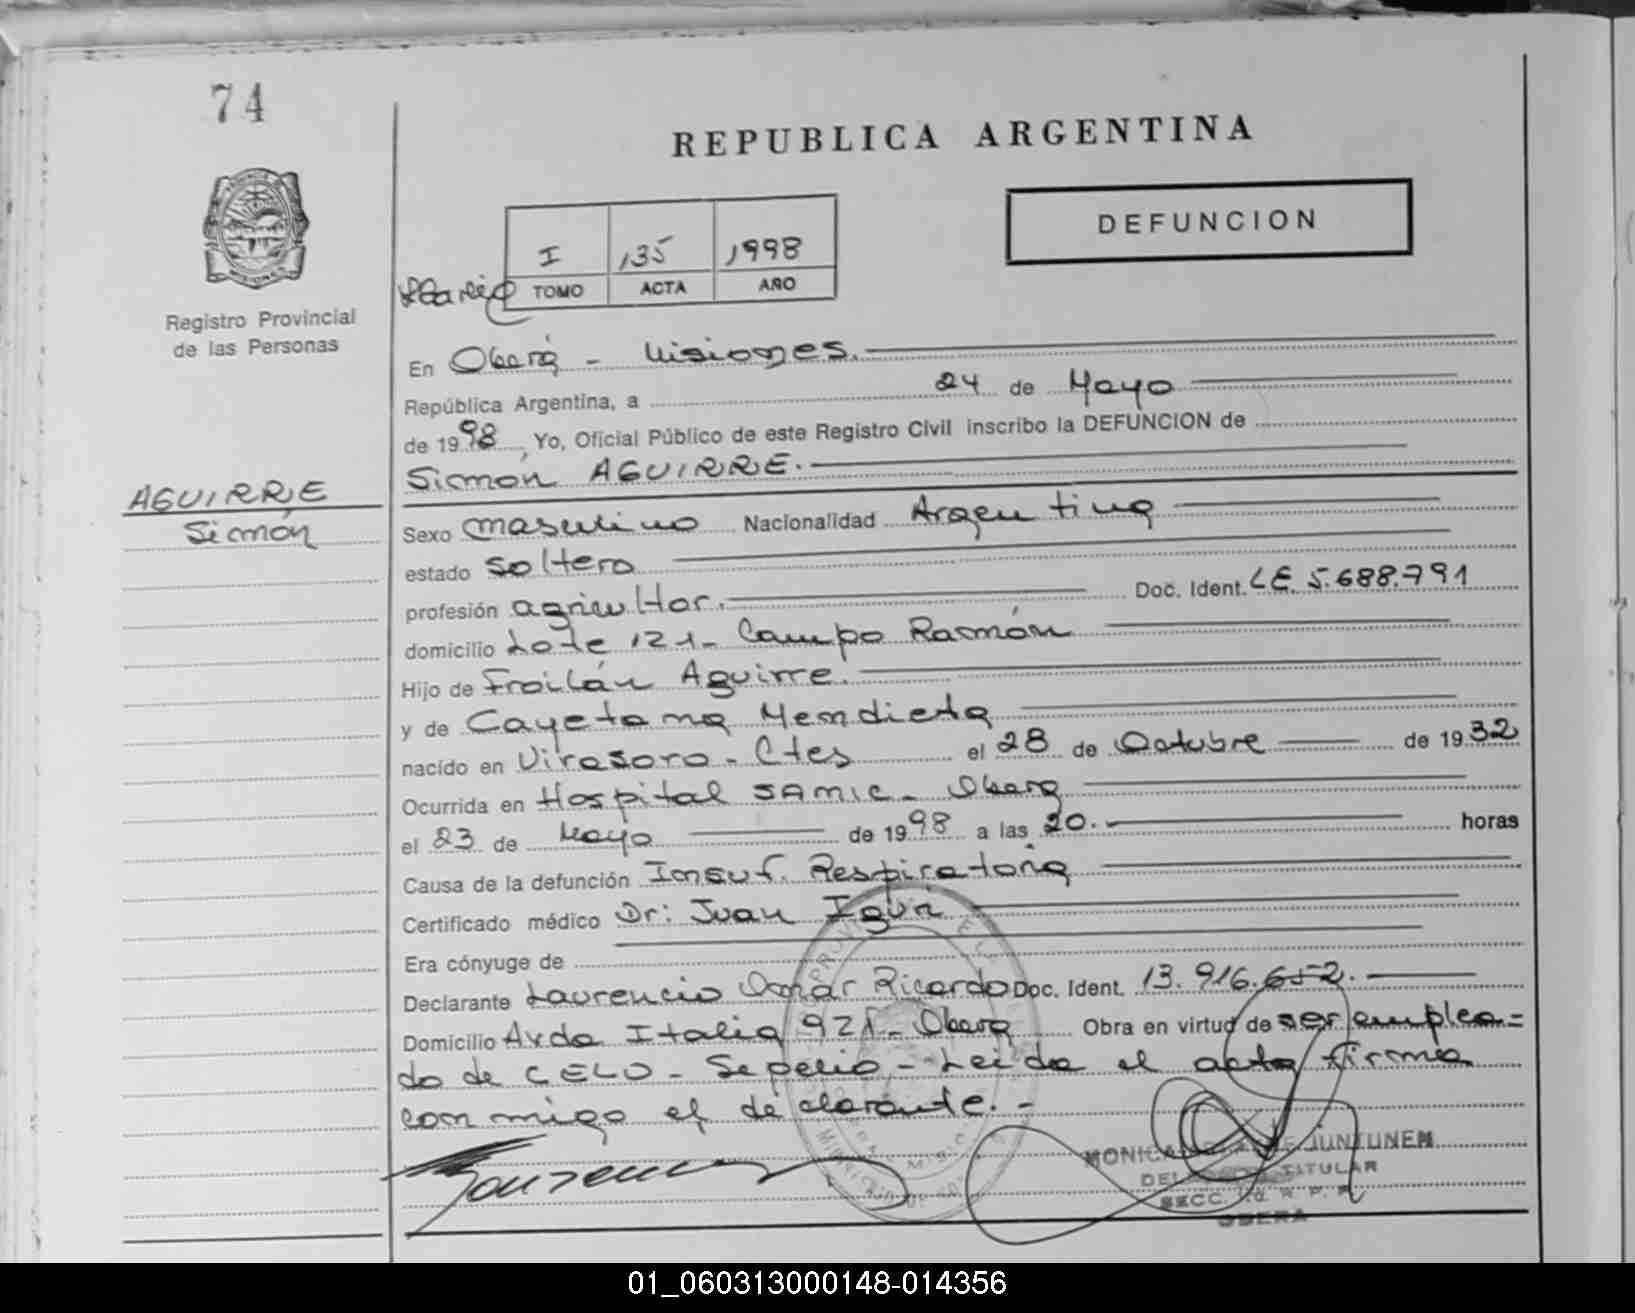 74
REPUBLICA ARGENTINA
DEFUNCION
I 135 1998
TOMO ACTA AÑO
Registro Provincial
de las Personas
En Oberá - Misiones.
República Argentina, a 24 de Mayo
de 1998, Yo, Oficial Público de este Registro Civil inscribo la DEFUNCION de
Simon AGUIRRE.
AGUIRRE
Simón
Sexo masculino Nacionalidad Argentina
estado soltero
profesión agricultor. Doc. Ident. LE 5.688.791
domicilio Lote 121 - Campo Ramón
Hijo de Froilán Aguirre.
y de Cayetana Mendieta
nacido en Virasoro - Ctes el 28 de Octubre de 1932
Ocurrida en Hospital SAMIC - Oberá
el 23 de Mayo de 1998 a las 20. horas
Causa de la defunción Insuf. Respiratoria
Certificado médico Dr: Juan
Era cónyuge de
Declarante Laurencio Omar Ricardo Doc. Ident. 13.916.652.
Domicilio Avda Italia 921 - Oberá Obra en virtud de ser emplea=
do de CELO - Sepelio - Leida el acta firma
conmigo el declarante. -
MONICA DE JUNTUNEN
TITULAR
SECC. 1a. R. P. P.
OBERA
01_060313000148-014356